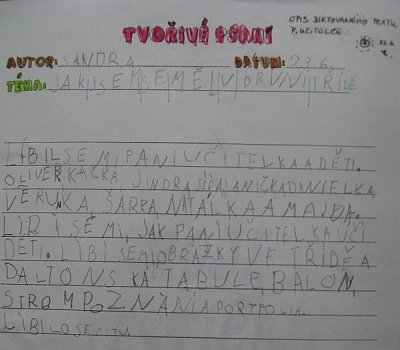 TVOŘIVÉ PSANÍ
OPIS DIKTOVANÉHO TEXTU
P. UČITELCE
AUTOR: SANDRA DATUM: 23.6.
TÉMA: JAK JSEM SE MĚL V PRVNÍ TŘÍDĚ
LÍBIL SE MI PANI UČITELKA A DĚTI.
OLIVER KAČKA JINDRA ANIČKA DANIELKA
VĚRUNKA ŠÁRKA NATÁLKA A MAJDA.
LÍBÍ SE MI, JAK PANI UČITELKA UČÍ
DĚTI. LÍBÍ SE MI OBRÁZKY VE TŘÍDĚ A
DALTONSKÁ TABULE, BALON,
STROM POZNÁNÍ A PORTFOLIA.
LÍBILO SE MI TU.